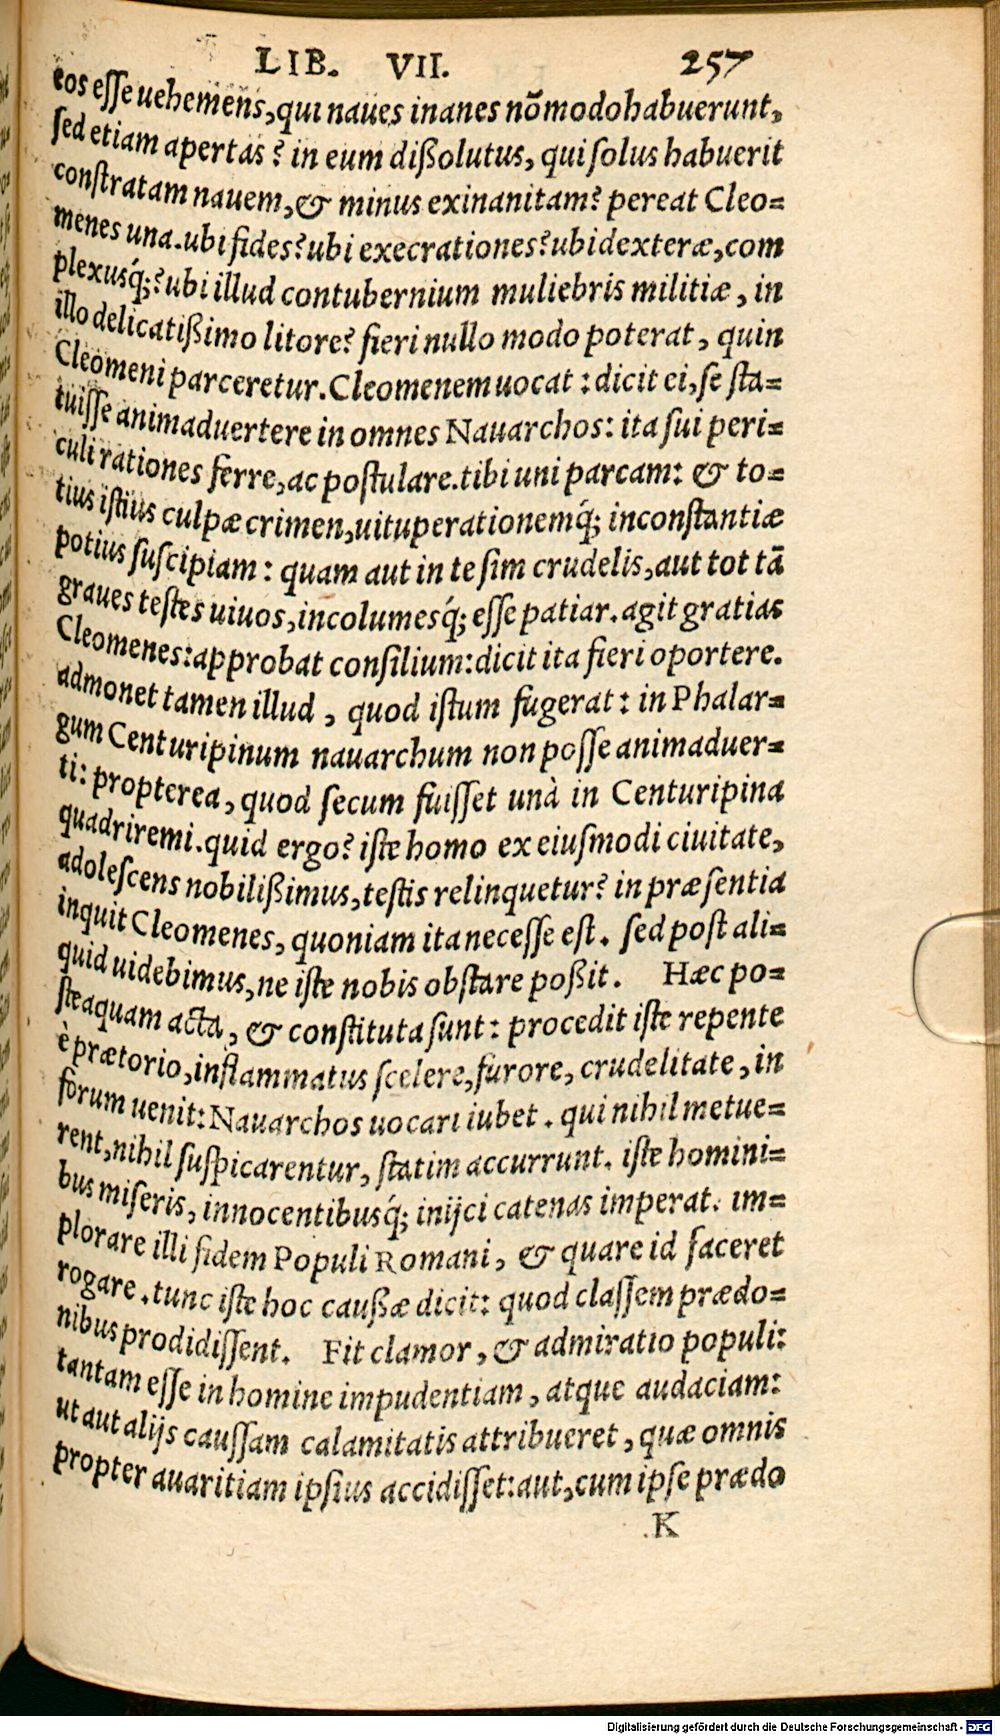 LIB. VII. 257
eos eſſe uehemens, qui naues inanes nõ modo habuerunt,
ſed etiam apertas? in eum dißolutus, qui ſolus habuerit
conſtratam nauem, & minus exinanitam? pereat Cleo=
menes una. ubi fides? ubi execrationes? ubi dexteræ, com
plexusq́;? ubi illud contubernium muliebris militiæ, in
illo delicatißimo litore? fieri nullo modo poterat, quin
Cleomeni parceretur. Cleomenem uocat: dicit ei, ſe ſta=
tuiſſe animaduertere in omnes Nauarchos: ita ſui peri=
culi rationes ferre, ac poſtulare. tibi uni parcam: & to=
tius iſtius culpæ crimen, uituperationemq́; inconſtantiæ
potius ſuſcipiam: quam aut in te ſim crudelis, aut tot tã
graues teſtes uiuos, incolumesq́; eſſe patiar. agit gratias
Cleomenes: approbat conſilium: dicit ita fieri oportere.
admonet tamen illud, quod iſtum fugerat: in Phalar=
gum Centuripinum nauarchum non poſſe animaduer=
ti: propterea, quod ſecum fuiſſet unà in Centuripina
quadriremi. quid ergo? iſte homo ex eiuſmodi ciuitate,
adoleſcens nobilißimus, teſtis relinquetur? in præſentia
inquit Cleomenes, quoniam ita neceſſe eſt. ſed poſt ali=
quid uidebimus, ne iſte nobis obſtare poßit. Hæc po=
ſteaquam acta, & conſtituta ſunt: procedit iſte repente
è prætorio, inflammatus ſcelere, furore, crudelitate, in
forum uenit: Nauarchos uocari iubet. qui nihil metue=
rent, nihil ſuſpicarentur, ſtatim accurrunt. iſte homini=
bus miſeris, innocentibusq́; inijci catenas imperat. im=
plorare illi fidem Populi Romani, & quare id faceret
rogare. tunc iſte hoc caußæ dicit: quod claſſem prædo=
nibus prodidiſſent. Fit clamor, & admiratio populi:
tantam eſſe in homine impudentiam, atque audaciam:
ut aut alijs cauſſam calamitatis attribueret, quæ omnis
propter auaritiam ipſius accidiſſet: aut, cum ipſe prædo
K
Digitalisierung gefördert durch die Deutsche Forschungsgemeinschaft - DFG